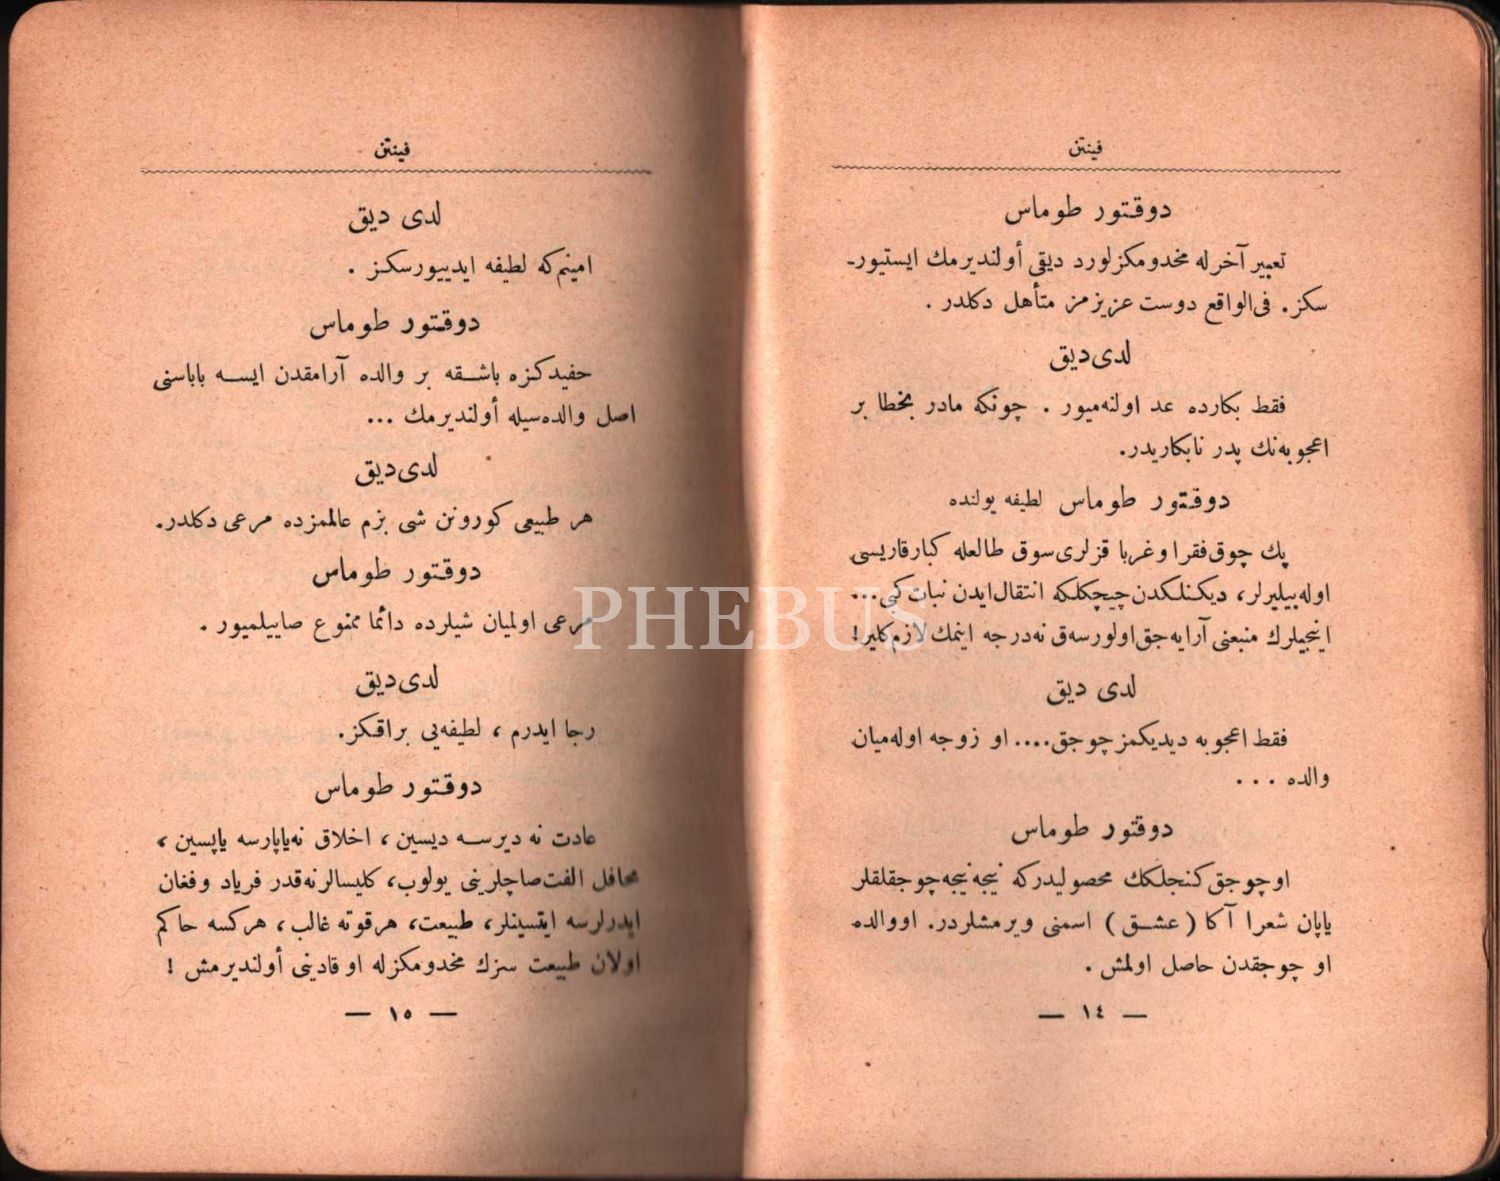 فينتن
دوقتور طوماس
تعبير آخرله مخدومكزلورد ديقى أولنديرمك ايستيور-
سكز. فى‌الواقع دوست عزيزمز متأهل دكلدر.
لدى ديق
فقط بكارده عد اولنه‌ميور . چونكه مادر بخطا بر
اعجوبه‌نك پدر نابكاريدر.
دوقتور طوماس لطيفه يولنده
پك چوق فقرا وغربا قزلرى سوق طالعله كبار قاريسى
اوله‌بيليرلر، ديكنلكدن چيچكلكه انتقال ايدن نبات كبى...
اينجيلرك منبعنى آرايه‌جق اولورسه‌ق نه‌درجه اينمك لازم‌كلير!
لدى ديق
فقط اعجوبه ديديكمز چوجق.... او زوجه اوله‌ميان
والده ...
دوقتور طوماس
اوچوجق كنجلكك محصوليدركه نيجه نيجه چوجقلقلر
ياپان شعرا آكا (عشق) اسمنى ويرمشلردر. اووالده
او چوجقدن حاصل اولمش .
— ١٤ —
فينتن
لدى ديق
امينم‌كه لطيفه ايدييورسكز .
دوقتور طوماس
حفيدكزه باشقه بر والده آرامقدن ايسه باباسنى
اصل والده‌سيله أولنديرمك ...
لدى ديق
هر طبيعى كورونن شى بزم عالممزده مرعى دكلدر.
دوقتور طوماس
مرعى اولميان شيلرده دائما ممنوع صاييلميور .
لدى ديق
رجا ايدرم ، لطيفه‌يى براقكز.
دوقتور طوماس
عادت نه ديرسه ديسين ، اخلاق نه‌ياپارسه ياپسين ،
محافل الفت صاچلرينى يولوب، كليسالرنه‌قدر فرياد وفغان
ايدرلرسه ايتسينلر، طبيعت، هرقوته غالب، هركسه حاكم
اولان طبيعت سزك مخدومكزله او قادينى أولنديرمش !
— ١٥ —
PHEBUS